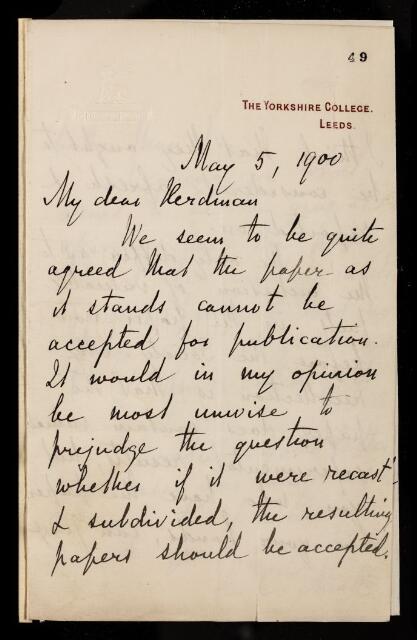 49
THE YORKSHIRE COLLEGE.
LEEDS.
May 5, 1900
My dear Herdman
We seem to be quite
agreed that the paper as
it stands cannot be
accepted for publication.
It would in my opinion
be most unwise to
prejudge the question
whether if it were recast
& subdivided, the resulting
papers should be accepted.